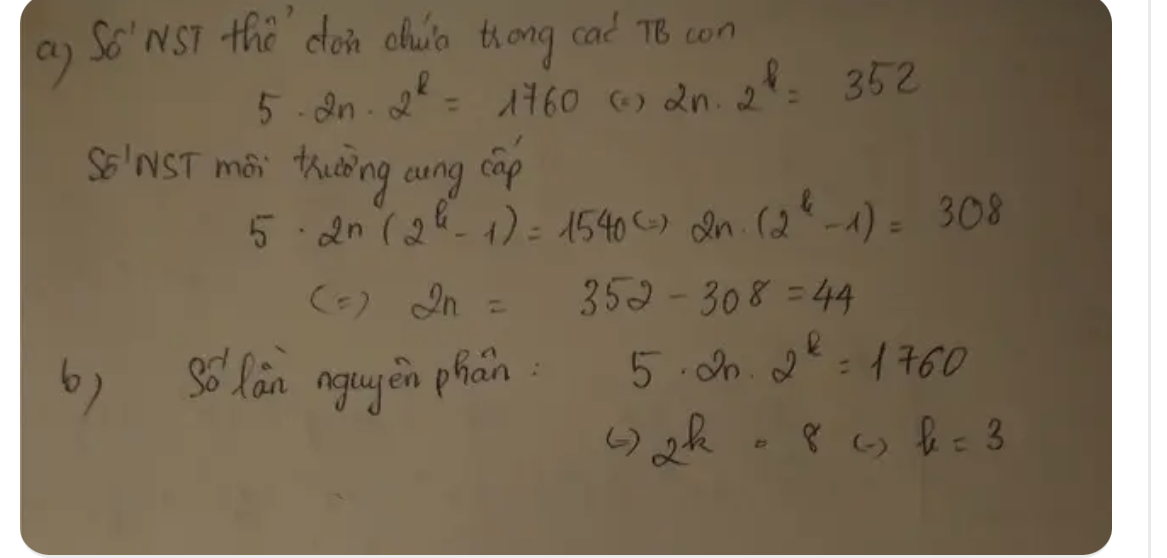 a) Số NST thể đơn chứa trong các TB con
5 . 2n . 2^k = 1760 (=) 2n . 2^k = 352
Số NST môi trường cung cấp
5 . 2n (2^k - 1) = 1540 (=) 2n . (2^k - 1) = 308
(=) 2n = 352 - 308 = 44
b) Số lần nguyên phân : 5 . 2n . 2^k = 1760
(=) 2^k = 8 (=) k = 3